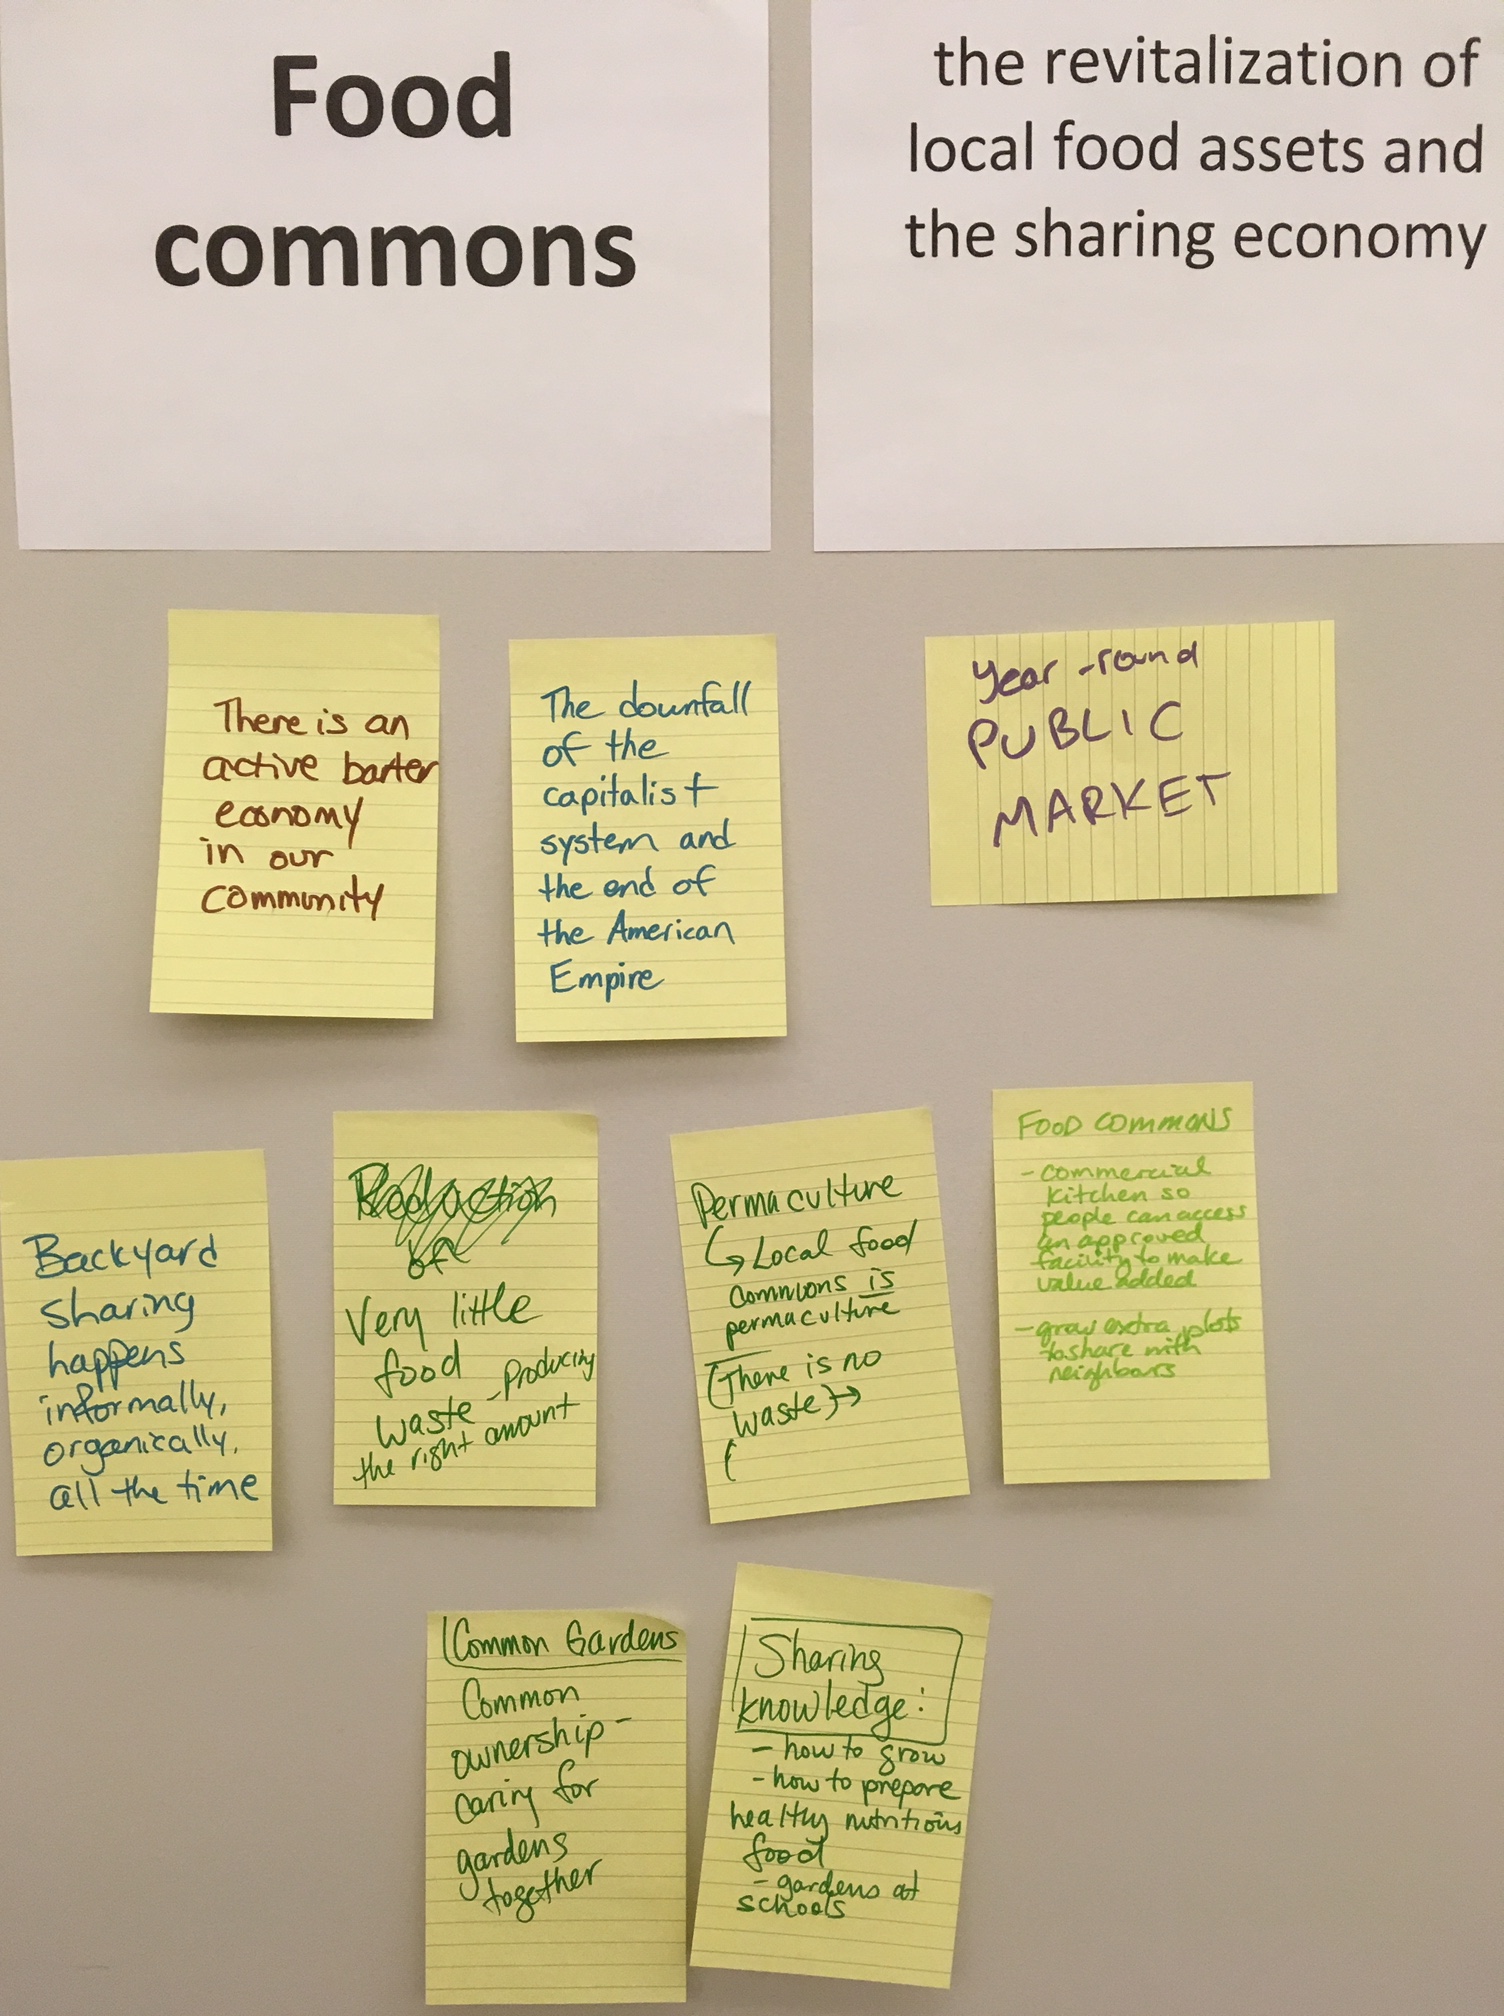 Food
commons
the revitalization of
local food assets and
the sharing economy
There is an
active barter
economy
in our
community
The downfall
of the
capitalist
system and
the end of
the American
Empire
Year-round
PUBLIC
MARKET
Backyard
sharing
happens
informally,
organically,
all the time
of
Very little
food
waste - Producing
the right amount
Permaculture
↳ Local food
commons is
permaculture
(There is no
waste) →
(
FOOD COMMONS
- commercial
kitchen so
people can access
an approved
facility to make
value added
- grow extra plots
to share with
neighbours
Common Gardens
Common
ownership -
caring for
gardens
together
Sharing
knowledge:
- how to grow
- how to prepare
healthy nutritious
food
- gardens at
schools